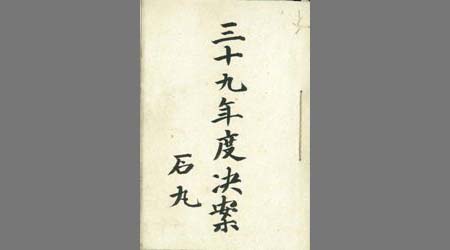 三十九年度決案
石丸